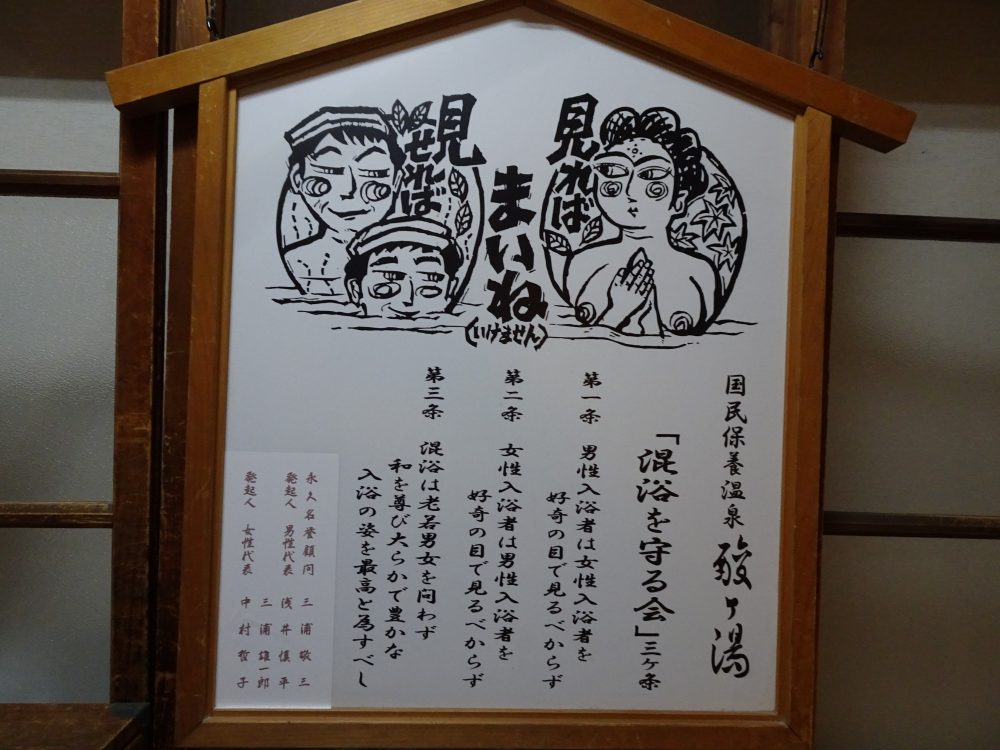 見れば
まいね
(いけません)
見
せれば
国民保養温泉 酸ヶ湯
「混浴を守る会」三ヶ条
第一条 男性入浴者は女性入浴者を
好奇の目で見るべからず
第二条 女性入浴者は男性入浴者を
好奇の目で見るべからず
第三条 混浴は老若男女を問わず
和を尊び大らかで豊かな
入浴の姿を最高と為すべし
永久名誉顧問 三浦敬三
発起人 男性代表 浅井慎平
三浦雄一郎
発起人 女性代表 中村哲子